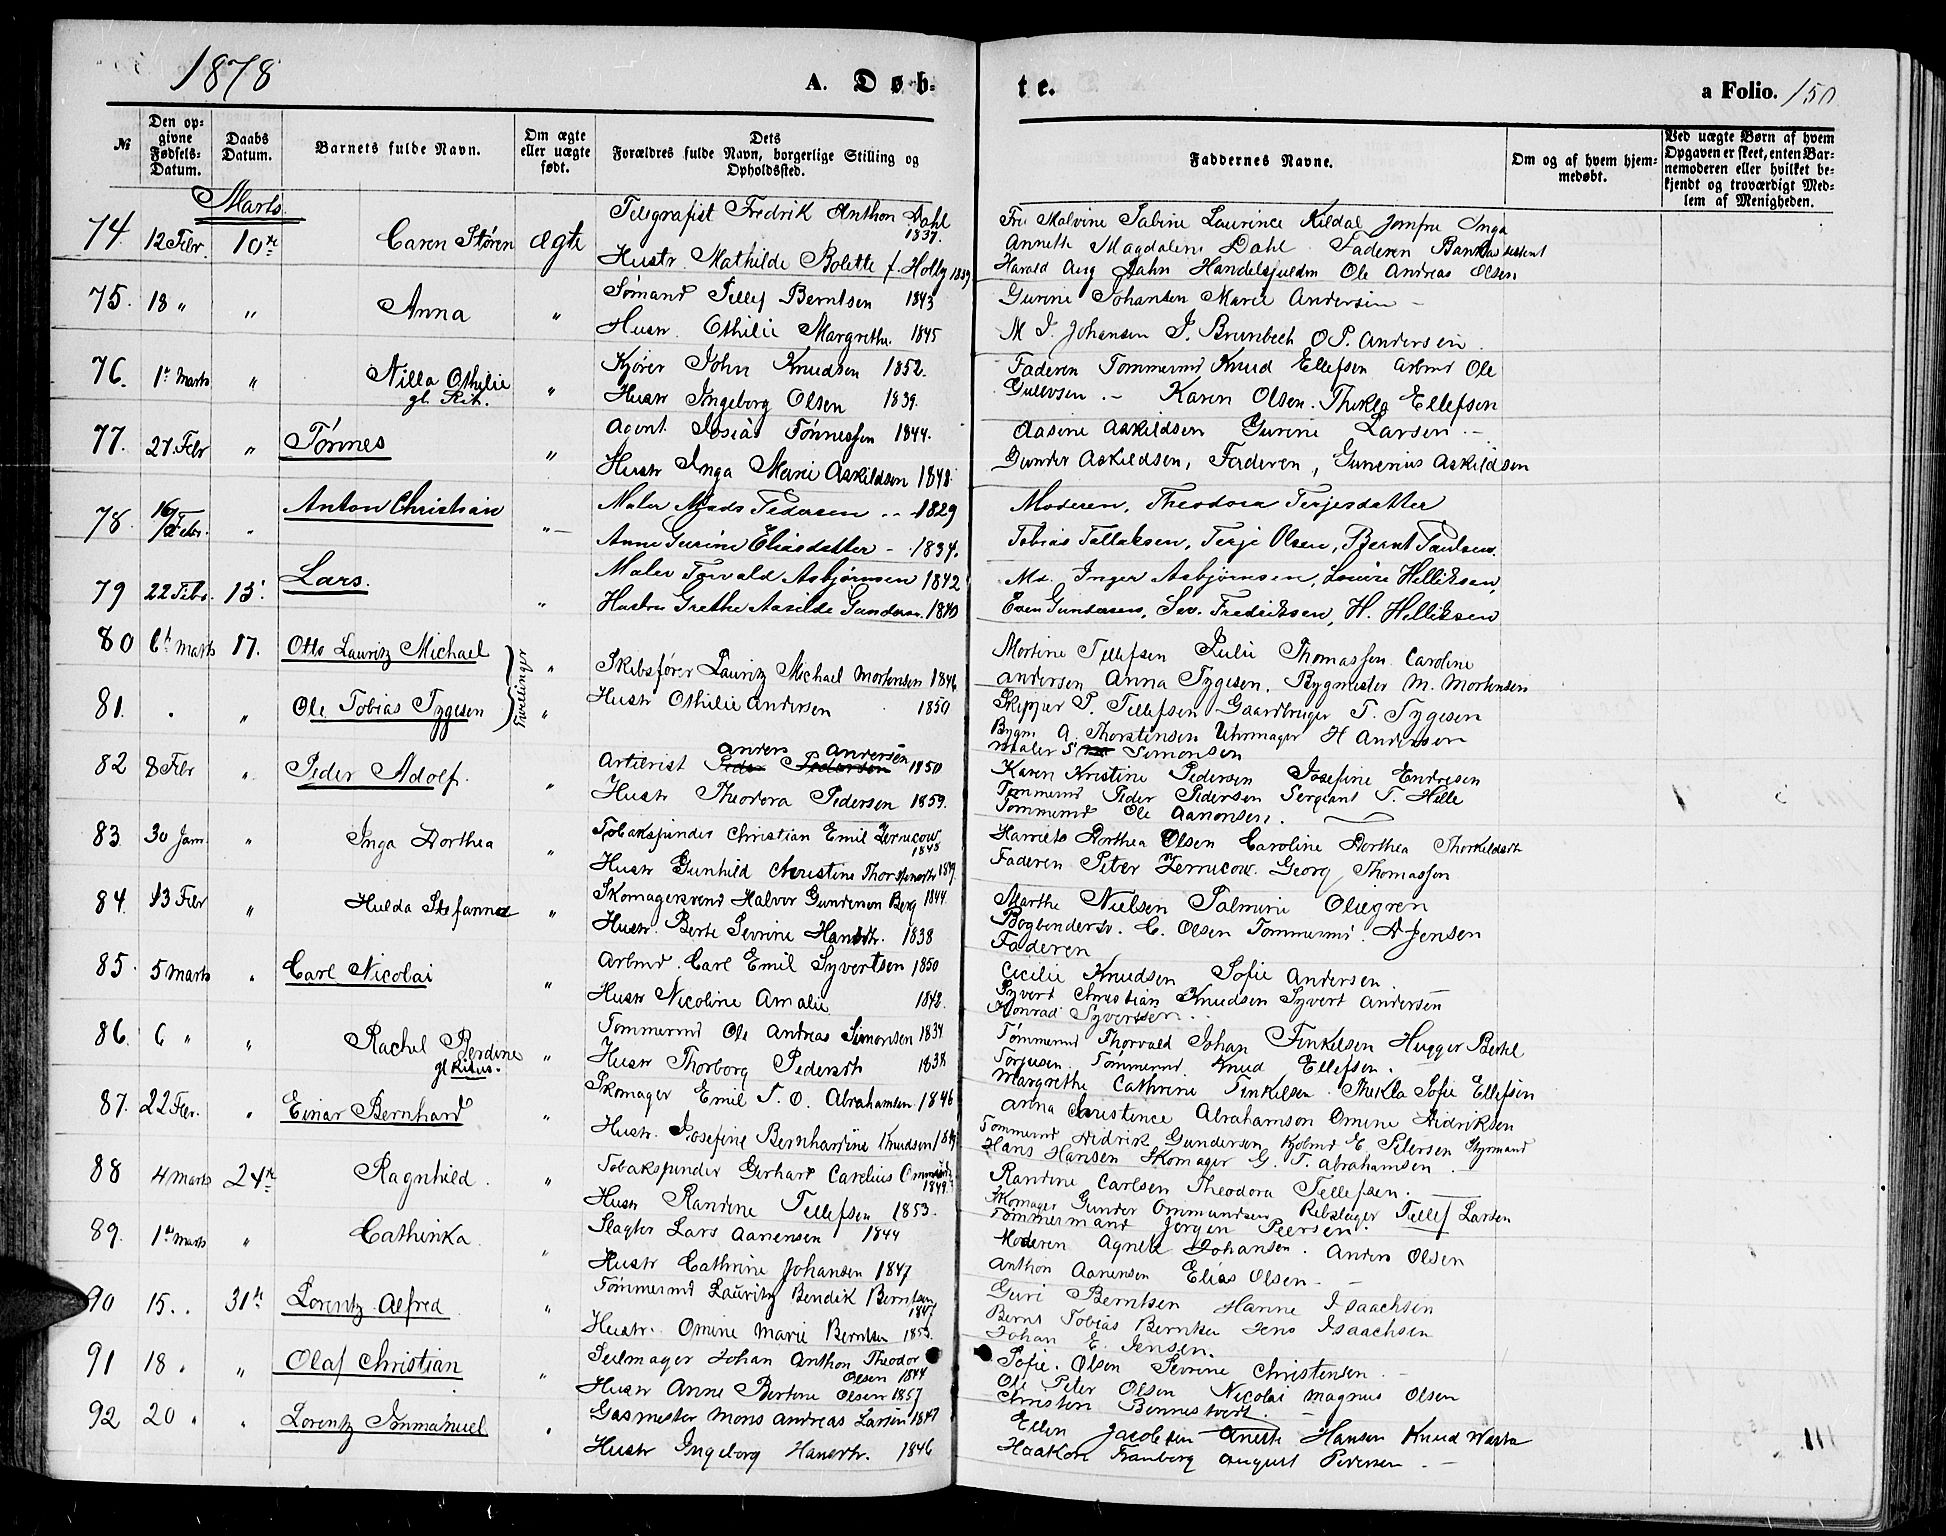 1878
A. Døb-
te.
a Folio. 150
№
Den op-
givne
Fødsels-
Datum.
Daabs
Datum.
Barnets fulde Navn.
Om ægte
eller uægte
født.
Dets
Forældres fulde Navn, borgerlige Stilling og
Opholdssted.
Faddernes Navne.
Om og af hvem hjem-
medøbt.
Ved uægte Børn af hvem
Opgaven er skeet, enten Bar-
nemoderen eller hvilket be-
kjendt og troværdigt Med-
lem af Menigheden.
Marts.
74. 12 Febr 10de Caren Støren ægte Telegrafist Fredrik Anthon Dahl 1837.
Hustr. Mathilde Bolette f. Holby 1839
Fru Malvine Sabine Laurince Kildal Jomfru Inga
Annette Magdalene Dahl Faderen Bankassistent
Harald Aug Jahn Handelsfuldm Ole Andreas Olsen
75. 18 " " Anna " Sømand Tellef Berntsen 1843
Hustr. Othilie Margrethe. 1845
Gurine Johansen Maree Andersen -
M J Johansen J. Brunbech O P. Andersen.
76. 1te Marts " Nilla Othilie gl. Rit. " Kjører John Knudsen 1852.
Hustr Ingeborg Olsen 1839.
Faderen Tømmermd Knud Ellefsen Arbmd Ole
Gullovsen. - Karen Olsen. Thekla Ellefsen
77. 27 Febr " Tønnes " Agent Josias Tønnessen 1844.
Hustr Inga Marie Askildsen 1848
Aasine Askildsen Gurine Larsen. -
Gunder Askildsen, Faderen, Gunerius Askildsen
78. 16/Febr. " Anton Christian " Maler Mads Pedersen - 1829
Anne Gurine Eliasdatter - 1834.
Moderen, Theodora Terjesdatter
Tobias Tellaksen, Terje Olsen, Bernt Paulsen.
79 22 Febr. 15. Lars. " Maler Torvald Asbjørnsen 1842
Hustru Grethe Aasilde Gundersen. 1840
Md. Inger Asbjørnsen, Louise Helliksen,
Even Gundersen, Sev. Fredriksen, H. Helliksen
80 6te Marts 17. Otto Lauritz Michael Tvillinger " Skibsfører Lauritz Michael Mortensen 1846
Mortine Tellefsen Julie Thomassen Caroline
Andersen Anna Tygesen. Bygmester M. Mortensen
81. " " Ole Tobias Tygesen " Hustr Othilie Andersen 1850
Skipper T. Tellefsen Gaardbruger T. Tygesen
Bygm A. Thorstensen Uhrmager H Andersen
Maler S Simonsen
82 8 Febr " Peder Adolf. " Artilerist Peder Pedersen Anders Andersen 1850
Hustr Theodora Pedersen 1859.
Karen Kristine Pedersen Josefine Endresen
Tømmermd Peder Pedersen Sergeant T. Hille
Tømmermd Ole Aanonsen.
83. 30 Jan. " Inga Dorthea " Tobakspinder Christian Emil Zernicow 1845
Hustr Gunhild Christine Thorstensdtr
Harriets Dorthea Olsen Caroline Dorthea Thorkildsdtr
Faderen Peter Zernicow. Georg Thomassen
84. 13 Febr " Hulda Stefanna " Skomagersvend Halvor Gundersen Berg 1844
Hustr. Berte Sevrine Hansdtr. 1838
Marthe Nielsen Palmine Oliegren
Bogbendersv. C. Olsen Tømmermd. A Jensen
Faderen
85. 5 Marts " Carl Nicolai " Arbmd. Carl Emil Syvertsen 1850
Hustr Nicoline Amalie 1842.
Cecilie Knudsen Sofie Andersen.
Syvert Christian Knudsen Syvert Andersen
Konrad Syversen.
86. 6 " " Rachel Berdine gl Ritus. " Tømmermd Ole Andreas Simonsen 1834
Hustr Thorborg Pedersdtr 1838
Tømmermd Thorvald Johan Finkelsen Hugger Bertel
Torjusen Tømmermd Knud Ellefsen.
Margrethe Cathrine Finkelsen Thekla Sofie Ellefsen
87. 22 Febr. " Einar Bernhard " Skomager Emil T. O. Abrahamsen 1846
Hustr. Josefine Bernhardine Knudsen
Anna Christence Abrahamson Omine Didriksen
Tømmermd Didrik Gundersen Kjobmd E Petersen Styrmand
Hans Hansen Skomager G. T. Abrahamsen.
88 4 Marts 24de Ragnhild. " Tobakspinder Gerhart Carelius Ommunds 1849.
Hustr Randine Tellefsen 1853.
Randine Carlsen Theodora Tellefsen.
Skomager Gunder Ommundsen Rebslager Tellef Larsen
Tømmermand Jørgen Peersen.
89. 1te Marts " Cathinka " Slagter Lars Aanensen 1844
Hustr Cathrine Johansen 1847
Moderen Agnete Johansen. Anders Olsen
Anthon Aanensen Elias Olsen -
90 15. . 31te Lorentz Alfred " Tømmermd Lauritz Bendik Berntsen 1847
Hustr. Omine Marie Berntsen 1853.
Guri Berntsen Hanne Isaachsen
Bernt Tobias Berntsen Jens Isaachsen
Johan E. Jensen.
91 18 . " Olaf Christian " Seilmager Johan Anthon Theodor Olsen 1844
Hustr Anne Bertine Olsen 1857
Sofie. Olsen Sevrine Christensen -
Ole Peter Olsen Nicolai Magnus Olsen
Christen Bennestvedt.
92 20 " " Lorentz Immanuel " Gasmester Mons Andreas Larsen 1847
Hustr Ingeborg Hansdtr. 1846
Ellen Jacobsen Anette Hansen Knud
Haakon Tranberg August Pedersen -